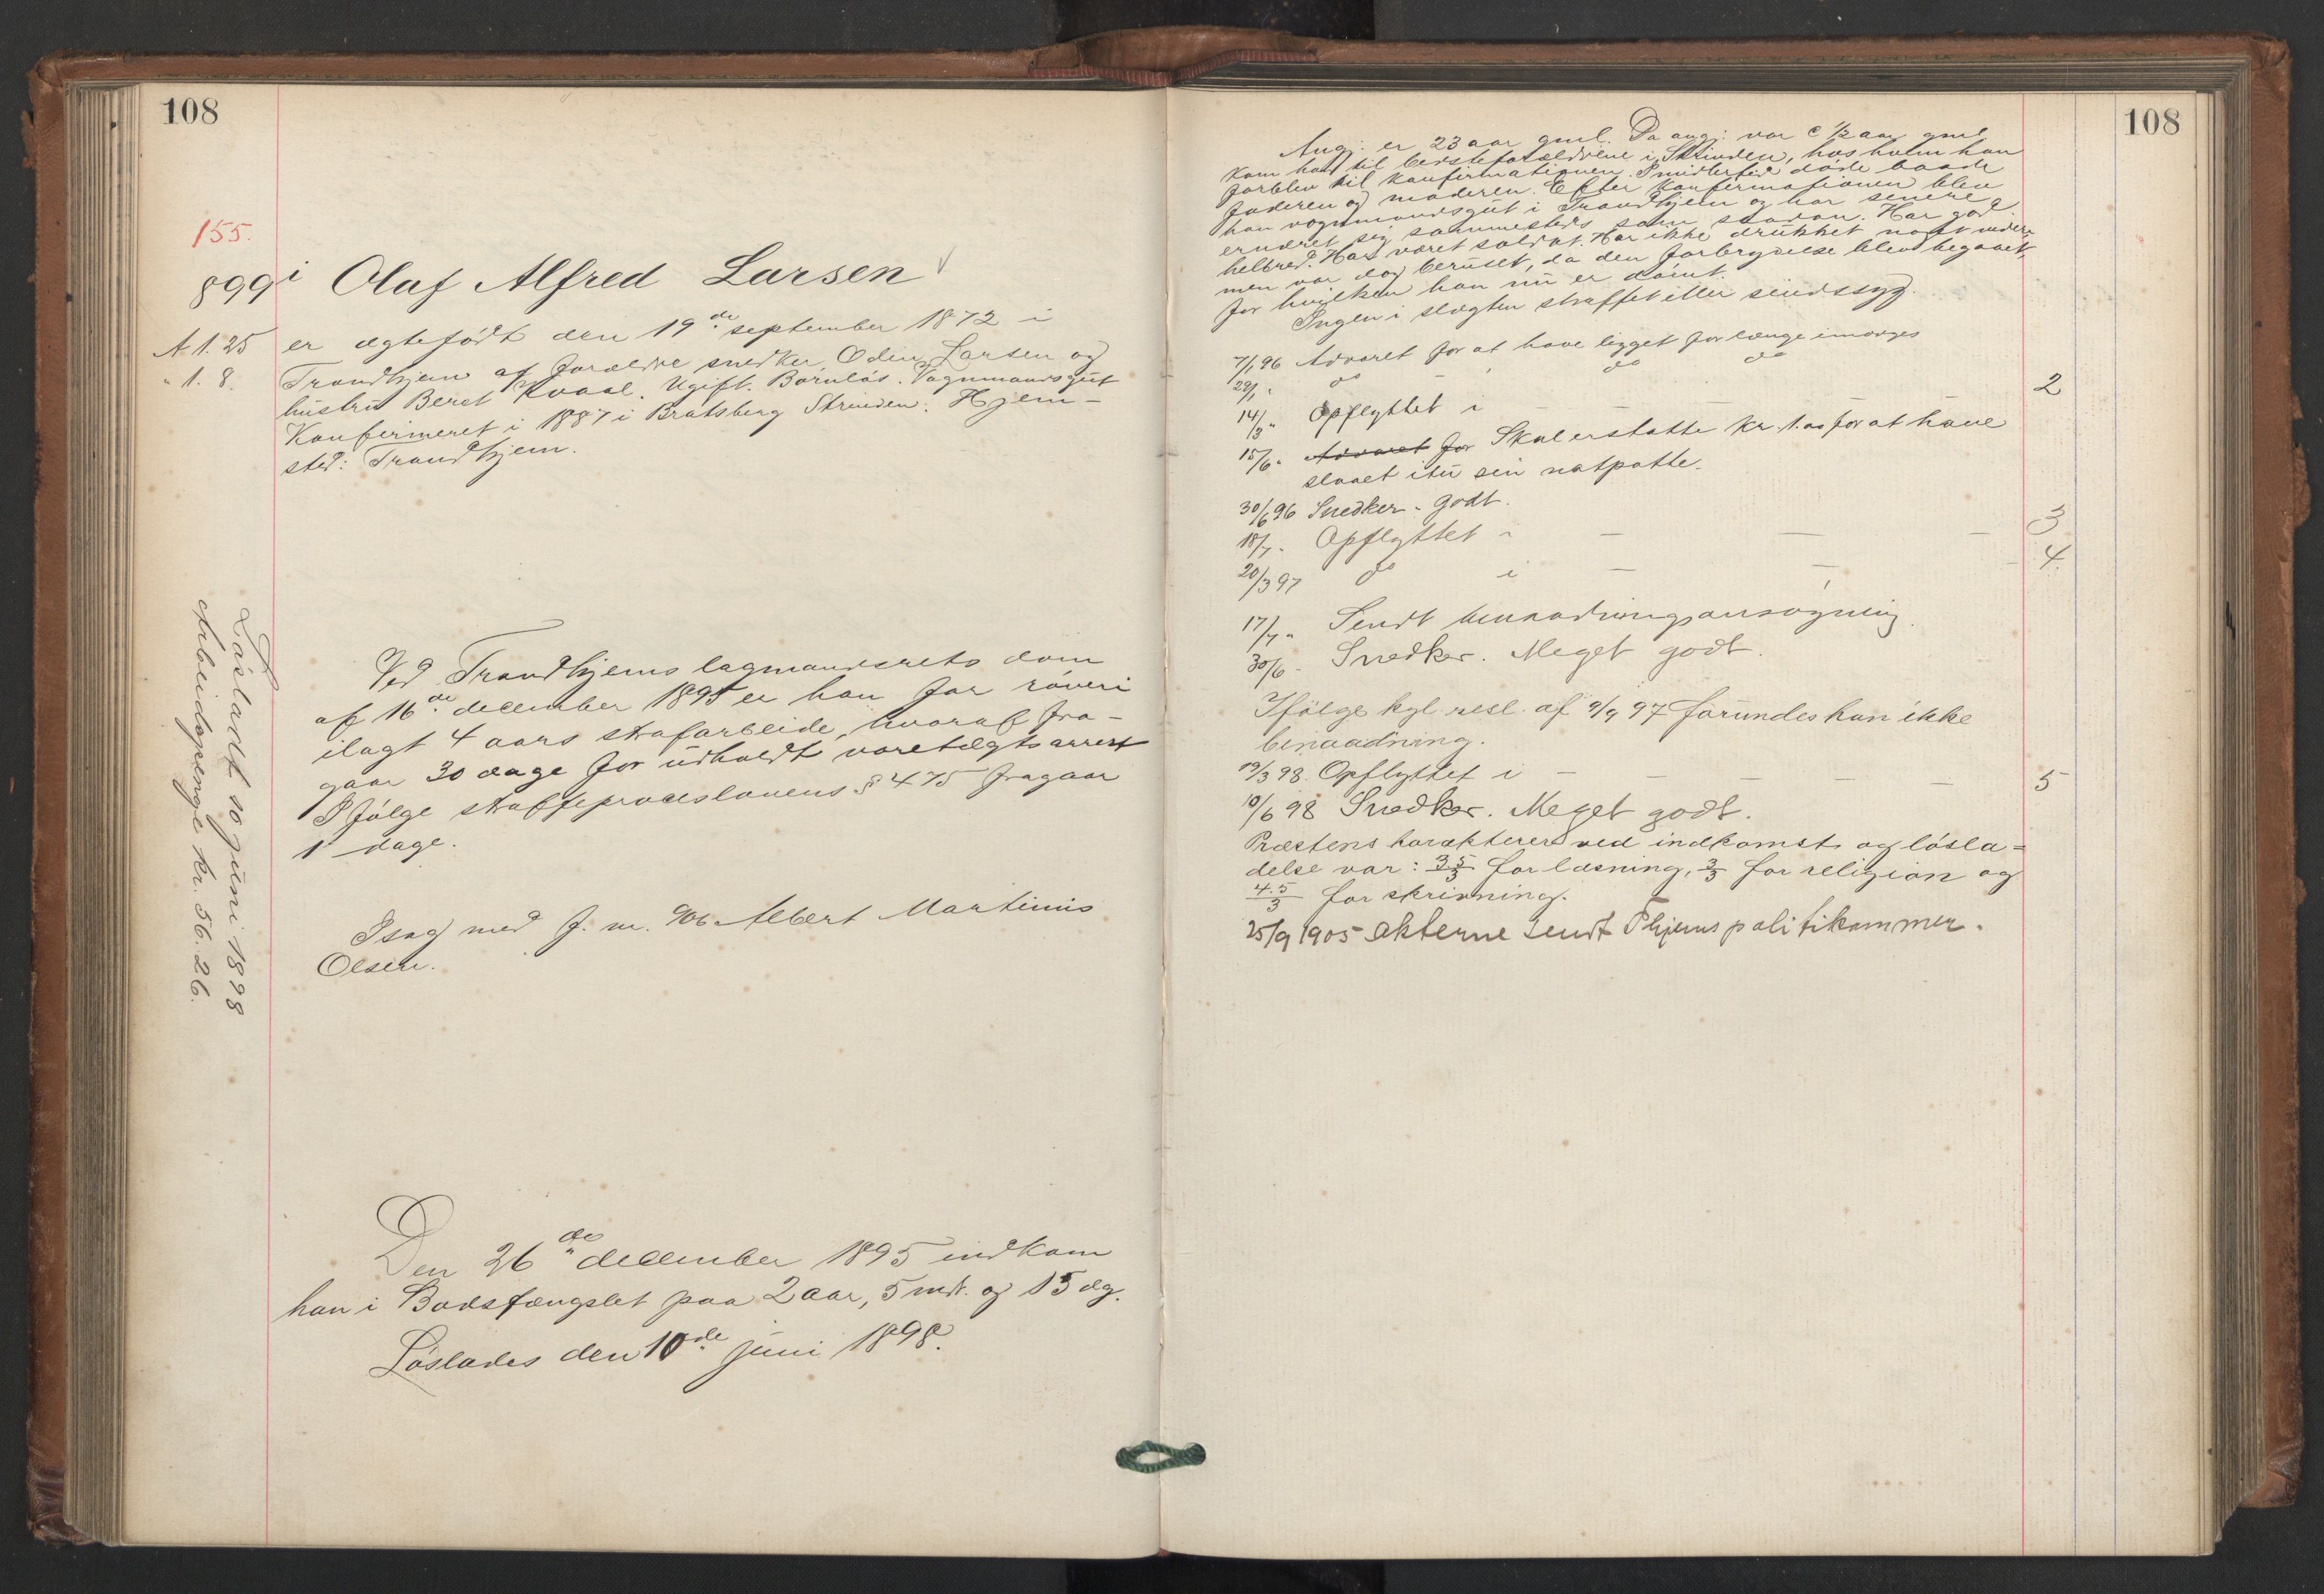 108
155.
899 i Olaf Alfred Larsen
A. 1. 25
" 1. 8.
er ægtefødt den 19de september 1872 i
Trondhjem af forældre snedker Odin Larsen og
hustru Beret Kvaal. Ugift. Barnløs. Vognmandsgut
Konfirmeret i 1887 i Bratsberg Strinden. Hjem-
sted: Trondhjem.
Løsladt 10 juni 1898
Arbeidspenge kr. 56.26.
Ved Trondhjems lagmandsrets dom
af 16de december 1895 er han for røveri
ilagt 4 aars strafarbeide, hvoraf fra-
gaar 30 dage for udholdt varetægtsarrest
Ifølge straffeproceslovens § 475 fragaar
1 dage.
I sag med f. nr. 906 Albert Martinius
Olsen.
Den 26de december 1895 indkom
han i Bodsfængslet paa 2 aar, 5 mdr. og 15 dg.
Løslades den 10de juni 1898.
108
Angj. er 23 aar gml. Da angj. var c 1/2 aar gml
kom han til bedsteforældrene i Strinden, hos hvem han
forblev til konfirmationen. Imidlertid døde baade
faderen og moderen. Efter konfirmationen blev
han vognmandsgut i Trondhjem og har senere
ernæret sig sammesteds som saadan. Har god
helbred. Har været soldat. Har ikke drukket noget videre
men var dog beruset, da den forbrydelse blev begaaet,
for hvilken han nu er dømt.
Ingen i slægten straffet eller sindssyg.
7/1 96 Advaret for at have ligget for længe imorges
22/1 " do do do
14/3 " Opflyttet i - - - - 2
15/6 " Advaret for Skal erstatte kr. 1.00 for at have
slaaet itu sin natpotte.
30/6 96 Snedker. Godt.
18/7 " Opflyttet i - - - 3
20/3 97 do i - - - 4
17/7 " Sendt benaadningsansøgning.
30/6 - Snedker. Meget godt.
Ifølge kgl. resl. af 9/9 97 forundes han ikke
benaadning.
19/3 98. Opflyttet i - - - - - 5
10/6 98 Snedker. Meget godt.
Præstens karakterer ved indkomst og løsla=
delse var: 3.5/3 for læsning, 3/3 for religion og
4.5/3 for skrivning.
25/9 1905 Akterne sendt Thjems politikammer.